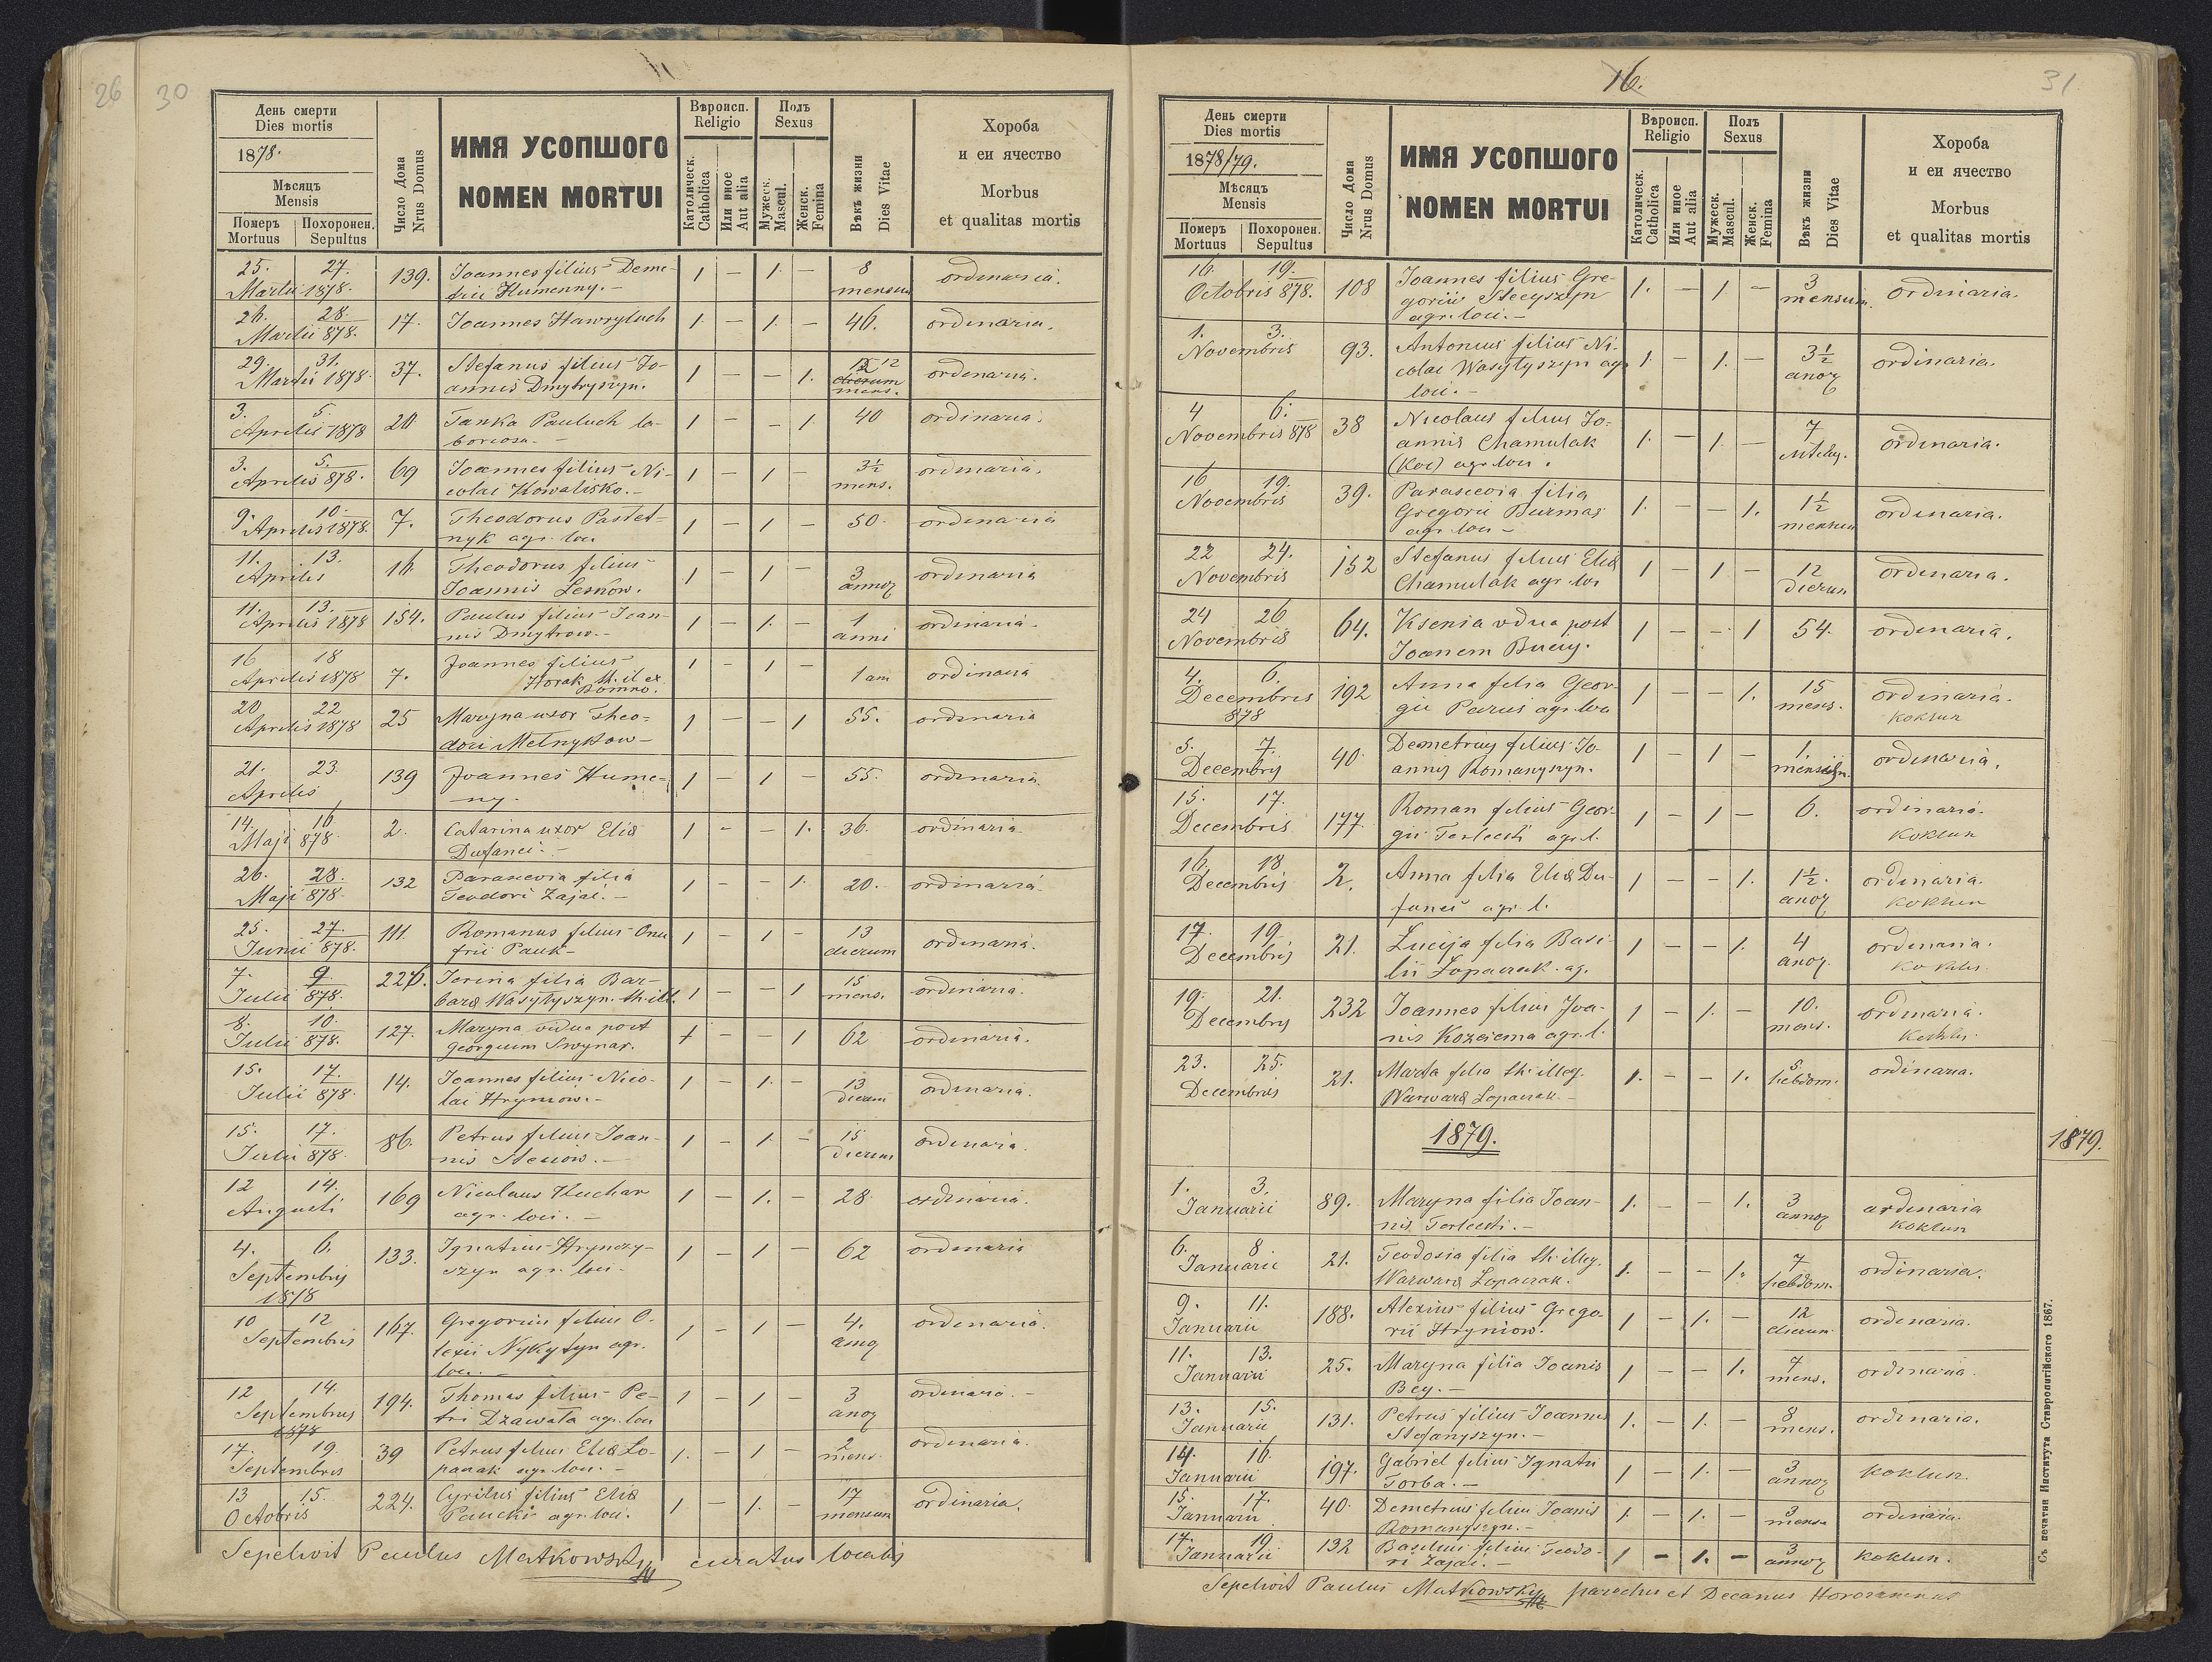 26 30
День смерти
Dies mortis
1878.
Мѣсяцъ
Mensis
Померъ Похоронен.
Mortuus Sepultus
Число Дома
Nrus Domus
ИМЯ УСОПШОГО
NOMEN MORTUI
Вѣроисп.
Religio
Католическ.
Catholica
Или иное
Aut alia
Полъ
Sexus
Мужеск.
Mascul.
Женск.
Femina
Вѣкъ жизни
Dies Vitae
Хороба
и еи ячество
Morbus
et qualitas mortis
25. 27. 139. Joannes filius Deme- 1 – 1. – 8 ordinaria.
Martii 1878. trii Humenny. – mensum
26. 28 17. Joannes Hawryluch 1. – 1. – 46. ordinaria.
Martii 878.
29. 31. 37. Stefanus filius Jo- 1 – – 1. 12 ordinaria.
Martii 1878. annis Dmytryszyn. dierum
mens.
3. 5. 20 Tanka Pauluch la- 1 – – 1. 40 ordinaria.
Aprilis 1878 boriosa. –
3. 5. 69 Joannes filius Ni- 1 – 1 – 3½ ordinaria.
Aprilis 878. colai Kowalisko. – mens.
9. 10. 7. Theodorus Pastet- 1 – 1 – 50. ordinaria
Aprilis 1878. nyk agr. loci
11. 13. 16 Theodorus filius 1 – 1 – 3 ordinaria
Aprilis Joannis Leskow. annoz
11. 13. 154. Paulus filius Joan- 1 – 1. – 1 ordinaria.
Aprilis 1878 nis Dmytrow. – anni
16 18 7. Joannes filius 1 – 1 – 1 an ordinaria
Aprilis 1878 Horak th. il ex
Romno.
20 22 25 Maryna uxor Theo- 1 – – 1 55. ordinaria
Aprilis 1878 dori Melnykow –
21. 23. 139 Joannes Hume- 1 – 1 – 55. ordinaria.
Aprilis ny.
14. 16 2. Catarina uxor Eliæ 1 – – 1. 36. ordinaria.
Maji 878. Dufanci. –
26. 28. 132 Parascevia filia 1 – – 1. 20. – ordinaria.
Maji 878. Teodori Zajac. –
25. 27. 111. Romanus filius Onu 1 – 1 – 13 ordinaria.
Junii 878. frii Pauk – dierum
7. 9. 226. Jerina filia Bar- 1 – – 1 15 ordinaria.
Julii 878. baræ Wasylyszyn. th. ill. mens.
8. 10. 127. Maryna vidua post 1 – – 1 62 ordinaria.
Julii 878. Georgium Swynar.
15. 17. 14. Joannes filius Nico- 1 – 1. – 13 ordinaria.
Julii 878. lai Hryniow. – dierum
15. 17. 86. Petrus filius Joan- 1 – 1. – 15 ordinaria.
Julii 878. nis Steciow. – dierum
12 14. 169 Nicolaus Kuchar 1 – 1. – 28. ordinaria.
Augusti agr. loci. –
4. 6. 133. Ignatius Hrynczy- 1 – 1 – 62 ordinaria
Septembris szyn agr. loci –
1878
10 12 167. Gregorius filius O- 1 – 1 – 4. ordinaria.
Septembris lexii Nykytyn agr. anoz
loci. –
12 14. 194. Thomas filius Pe- 1 – 1 – 3 ordinaria. –
Septembris tri Dzawała agr. loci anoz
1878
17. 19. 39 Petrus filius Eliæ Lo- 1. – 1 – 2 ordinaria.
Septembris paczak agr. loci. – mens.
13 15. 224. Cyrilus filius Eliæ 1. – 1. – 17 ordinaria.
Octobris Paucki agr. loci. mensum
Sepelivit Paulus Matkowsky curatus localis
16. 31
День смерти
Dies mortis
1878/79.
Мѣсяцъ
Mensis
Померъ Похоронен.
Mortuus Sepultus
Число Дома
Nrus Domus
ИМЯ УСОПШОГО
NOMEN MORTUI
Вѣроисп.
Religio
Католическ.
Catholica
Или иное
Aut alia
Полъ
Sexus
Мужеск.
Mascul.
Женск.
Femina
Вѣкъ жизни
Dies Vitae
Хороба
и еи ячество
Morbus
et qualitas mortis
16. 19. 108 Joannes filius Gre- 1. – 1 – 3 ordinaria.
Octobris 878. gorii Stecyszyn mensum.
agr. loci. –
1. 3. 93. Antonius filius Ni- 1. – 1. – 3½ ordinaria.
Novembris colai Wasylyszyn agr anoz
loci. –
4 6. 38 Nicolaus filius Jo- 1. – 1. – 7 ordinaria.
Novembris 878 annis Chamulak
(Koc) agr. loci.
16 19. 39. Parascevia filia 1. – – 1. 1½ ordinaria.
Novembris Gregorii Burmas mensum
agr. loci –
22 24. 152 Stefanus filius Eliæ 1 – 1 – 12 ordinaria.
Novembris Chamulak agr. loci dierum
24 26 64. Ksenia vdua post 1 – – 1 54. ordinaria.
Novembris Joanem Buciy.
4. 6. 192 Anna filia Geor- 1 – – 1. 15 ordinaria.
Decembris gii Parus agr. loci mens. koklun
878
5. 7. 40. Demetrius filius Jo- 1 – 1 – 1. ordinaria.
Decembris annis Romanyszyn.
15. 17. 177 Roman filius Geor- 1 – 1 – 6. ordinaria.
Decembris gii Terlecki agr. l. koklun
16. 18 2. Anna filia Eliæ Du- 1 – – 1. 1½. ordinaria.
Decembris fanci agr. l. anoz koklun
17. 19. 21. Lucija filia Basi- 1 – – 1. 4 ordinaria.
Decembris lii Lopaczak. ag. anoz
19. 21. 232 Joannes filius Joa- 1 – 1. – 10. ordinaria.
Decembris nis agr. l. mens.
23. 25. 21. Marta filia th. illeg. 1. – – 1. 5. ordinaria.
Decembris Warwaræ Lopaczak – hebdom.
1879. 1879.
1. 3. 89. Maryna filia Joan- 1. – 1. 3 ordinaria
Januarii nis Terlecki. – annoz koklun
6. 8 21. Teodosia filia th. illeg. 1. – – 1. 7 ordinaria.
Januarii Warwaræ Lopaczak. hebdom.
9. 11. 188. Alexius filius Grego- 1 – 1. – 12 ordinaria.
Januarii rii Hryniow. dierum
11. 13. 25. Maryna filia Joanis 1 – – 1. 7 ordinaria.
Januarii Bey. – mens.
13. 15. 131. Petrus filius Joannis 1. – 1. – 8 ordinaria.
Januarii Stefanyszyn. – mens.
14. 16. 197. Gabriel filius Ignatii 1 – 1. – 3 koklun.
Januarii Torba. – annoz
15. 17. 40. Demetrius filius Joanis 1. – 1. – 3 ordinaria.
Januarii Romanyszyn. – mens.
17. 19. 132 Basilius filius Teodo- 1 – 1. – 3 koklun.
Januarii ri Zajac. – annoz
Sepelivit Paulus Matkowsky parochus et Decanus
Съ печатни Института Ставропигійского 1867.